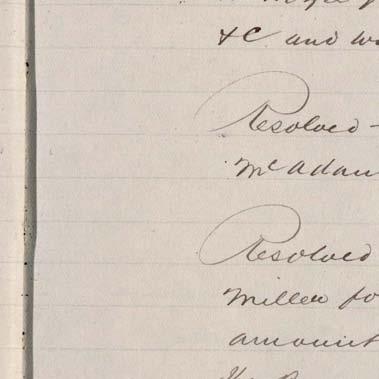 &C and
Resolved -
McAdam
Resolved
Miller fo
amount